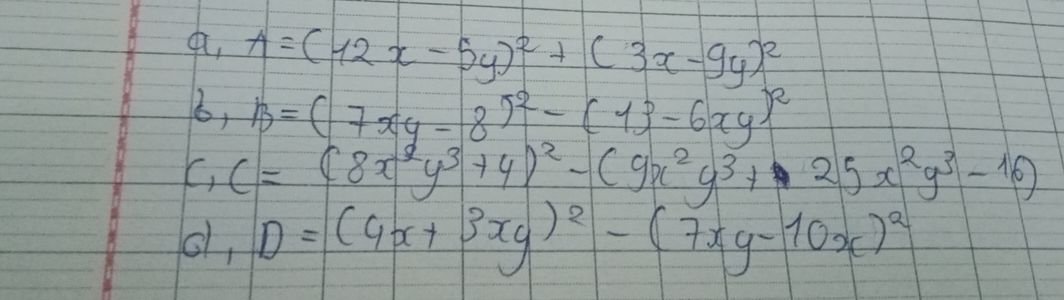 a, A = (12x - 5y)² + (3x - 9y)²
b, B = (7xy - 8)² - (13 - 6xy)²
c, C = (8x²y³ + 4)² - (9x²y³ + 25x²y³ - 16)
d, D = (4x + 3xy)² - (7xy - 10x)²